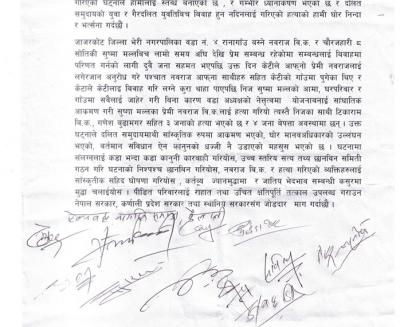 गरिएको घटनाले हामीलाई स्तब्ध बनाएको छ , र गम्भीर ध्यानाकर्षण भएको छ र दलित
समुदायको युवा र गैरदलित युवतिबिच विवाह हुन नदिनलाई गरिएको हत्याको हामी घोर निन्दा
र भर्त्सना गर्दछौं ।
जाजरकोट जिल्ला भेरी नगरपालिका वडा नं. ४ रानागाउँ बस्ने नवराज बि.क. र चौरजहारी ८
सोतिकी सुष्मा मल्लबिच लामो समय अघि देखि प्रेम सम्बन्ध रहेकोमा सम्बन्धलाई विवाहमा
परिणत गर्नको लागी दुवै जना सहमत भएपछि उक्त दिन केटीले आफ्नो प्रेमी नवराजलाई
लगेरजान अनुरोध गरे पश्चात नवराज आफ्ना साथीहरु सहित केटीको गाँउमा पुगेका थिए र
केटीले केटीलाई विवाह गरि लग्ने कुरा थाहा पाएपछि निज सुष्मा मल्लको आमा, घरपरिवार र
गाउँमा सबैलाई जाहेर गरी बिना कारण वडा अध्यक्षको नेतृत्वमा योजनालाई सांघातिक
आक्रमण गरी सुष्मा मल्लका प्रेमी नवराज बि.क.लाई हत्या गरियो त्यस्तै निजका साथी टिकाराम
बि.क., गणेश बुढामगर सहित ३ जनाको हत्या भएको छ र ४ जना वेपत्ता अवस्थामा छन् । उक्त
घटनाले दलित समुदायमाथी सांस्कृतिक रुपमा आक्रमण भएको, घोर मानवअधिकारको उल्लंघन
भएको, वर्तमान संविधान ऐन कानुनको धज्जी नै उडाएको महसुस भएको छ । घटनामा
संलग्नलाई कडा भन्दा कडा कानुनी कारवाही गरियोस, उच्च स्तरिय सत्य तथ्य छानविन समिती
गठन गरि घटनाको निश्पक्ष छानविन गरियोस, नवराज बि.क. र हत्या गरिएको व्यक्तिहरुलाई
सांस्कृतीक सहिद घोषणा गरियोस्, कर्तव्य ज्यानमुद्दामा र जातिय भेदभाव सम्बन्धी कसुरमा
मुद्दा चलाईयोस । पीडित परिवारलाई राहात तथा उचित क्षतिपुर्ति तत्काल उपलब्ध गराउन
नेपाल सरकार, कर्णाली प्रदेश सरकार तथा स्थानिय सरकारसंग जोडदार माग गर्दछौं ।